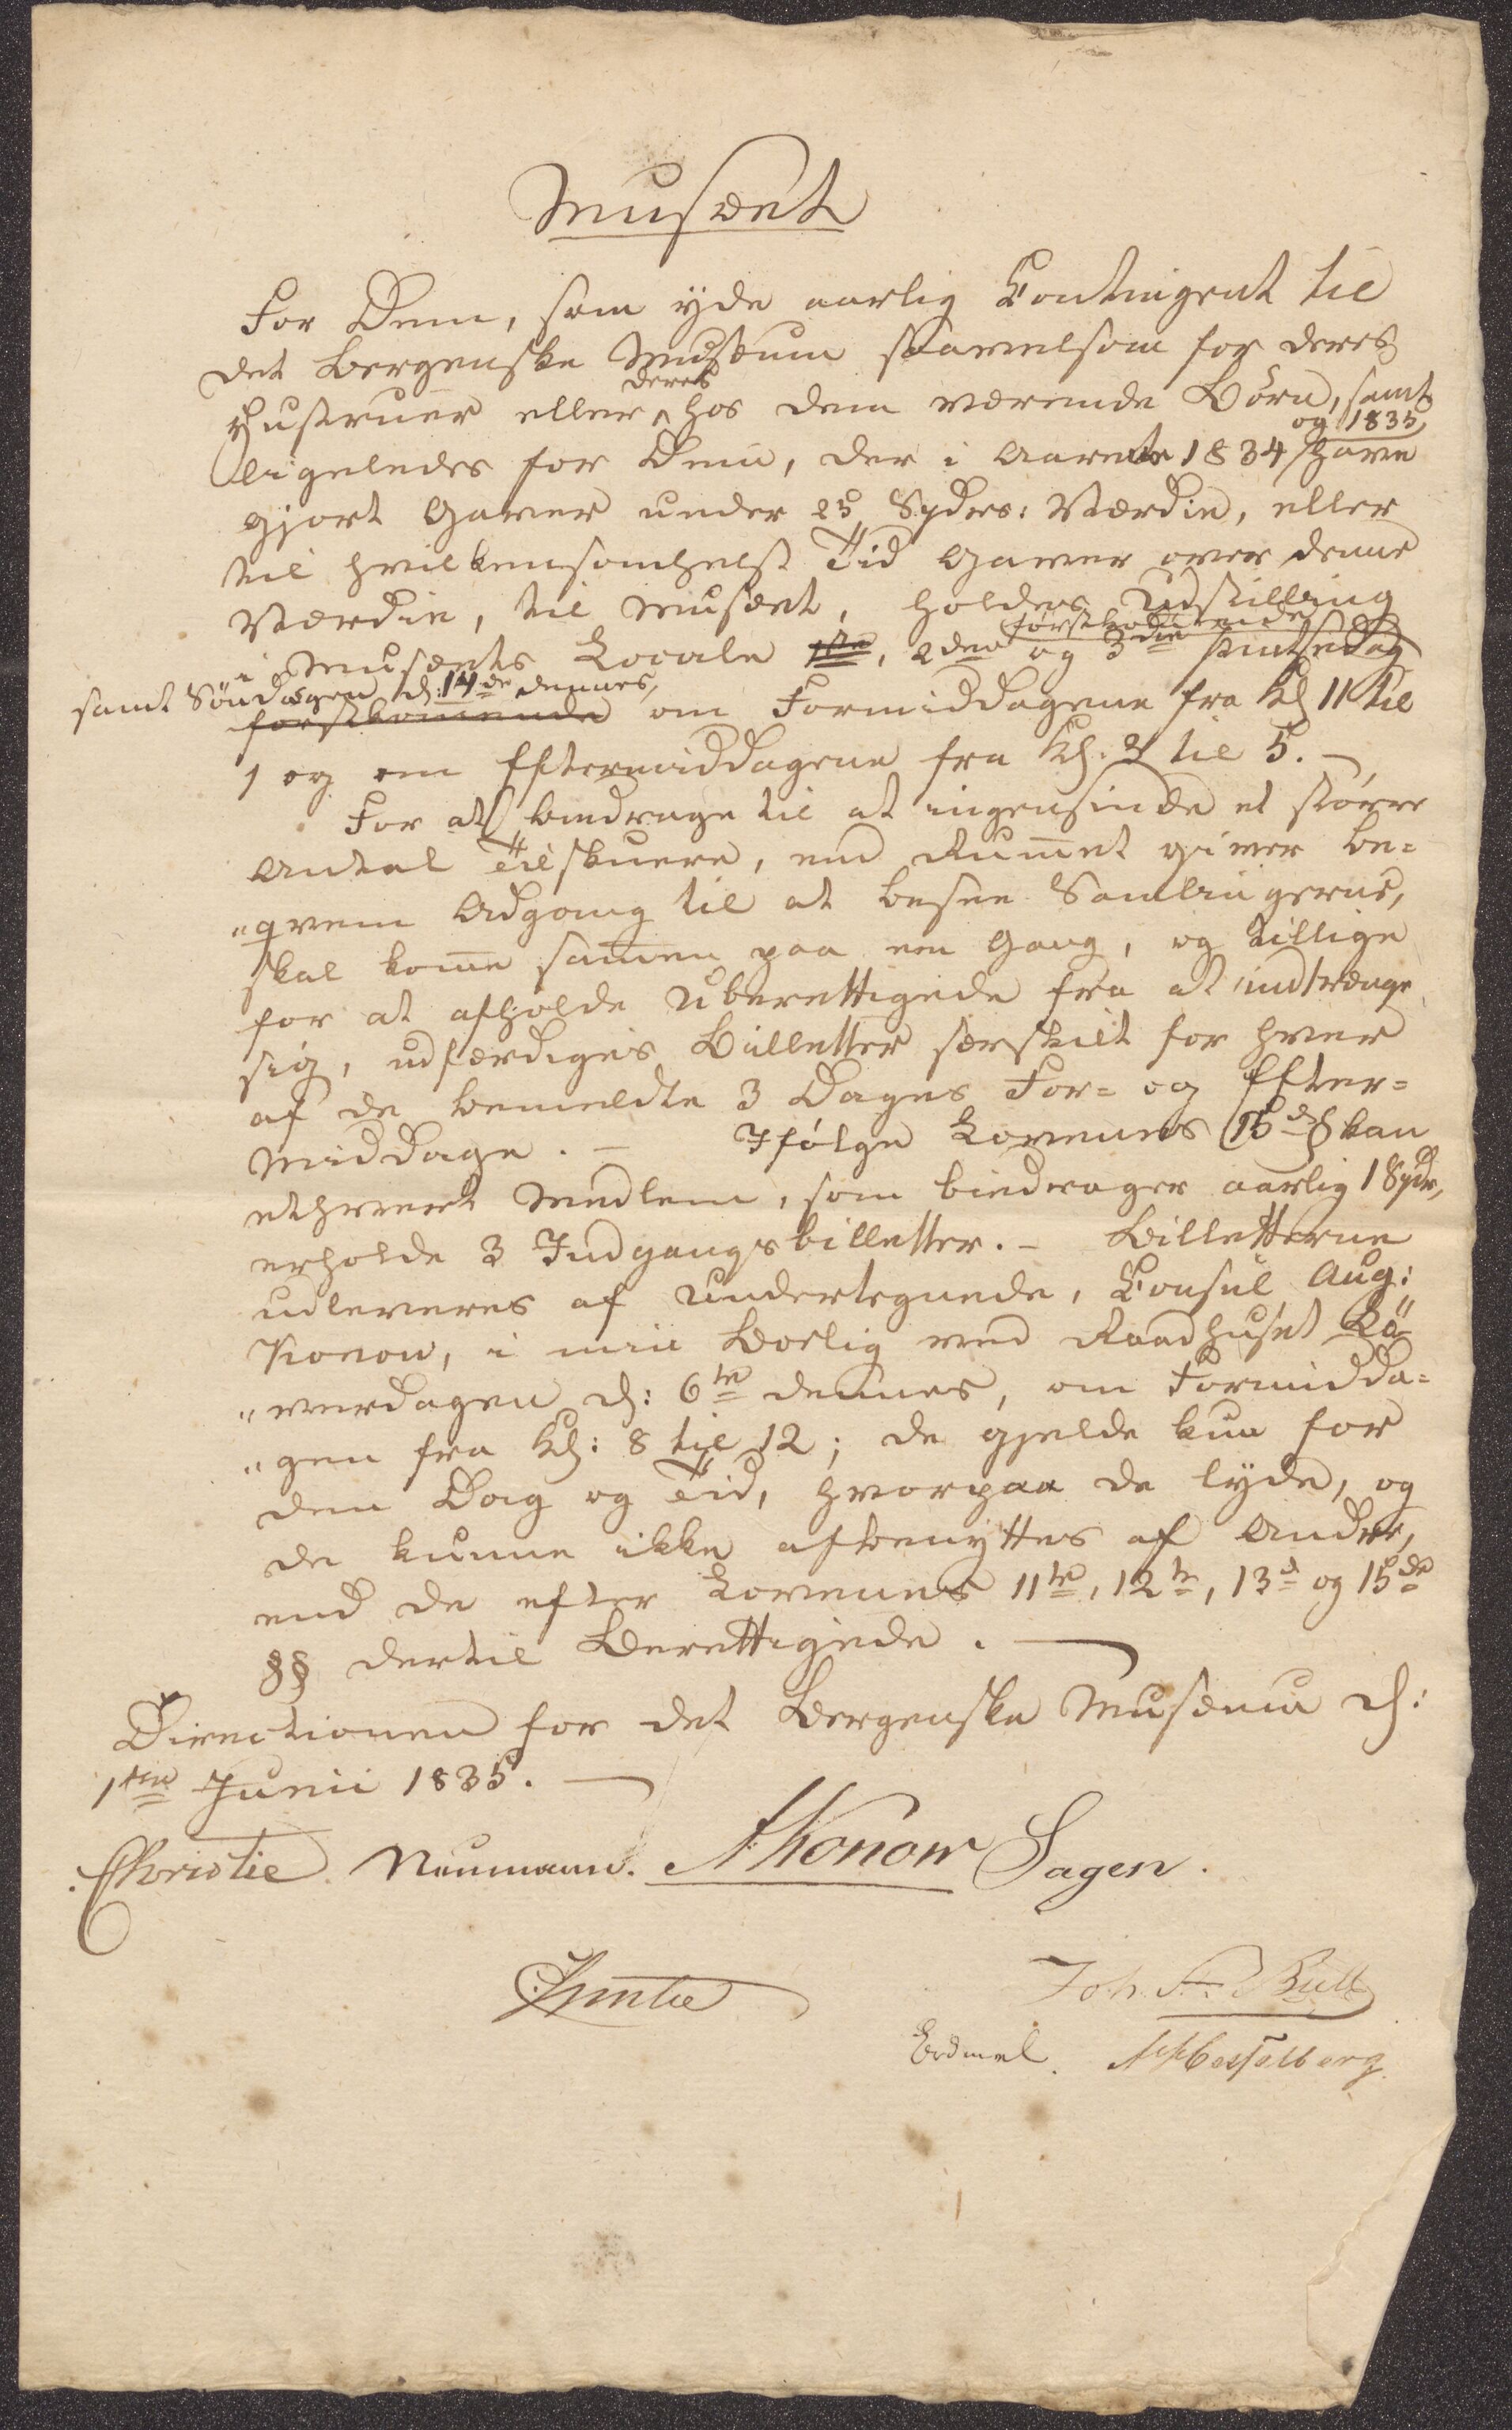 Musæet
For Dem, som yde aarlig Contingent til
det Bergenske Musæum saavelsom for deres
Hustruer eller deres hos dem værende Börn, samt
ligeledes for Dem, der i Aarene 1834 og 1835 have
gjort Gaver under 25 Spdrs: Værdie, eller
til hvilkensomhelst Tid Gaver over denne
Værdie, til Musæet, holdes Udstilling
i Musæets Locale 1ste, 2den og 3die förstkommende Pintsedag
samt Söndagen d: 14de dennes,
förstkommende om Formiddagene fra Kl 11 til
1 og om Eftermiddagene fra Kl. 3 til 5. –
For at bidrage til at ingensinde et större
Antal Tilskuere, end Rummet giver be-
"qvem Adgang til at besee Samlingerne,
skal komme sammen paa een Gang, og tillige
for at afholde Uberettigede fra at indtrænge
sig, udfærdiges Billetter særskilt for hver
af de bemeldte 3 Dages For- og Efter-
middage. – Ifölge Lovenes 15de § kan
ethvert Medlem, som bidrager aarlig 1 Spdr,
erholde 3 Indgangsbilletter. – Billetterne
udleveres af undertegnede, Consul Aug:
Konow, i min Bolig ved Raadhuset Lö-
"verdagen d: 6te dennes, om Formidda-
"gen fra Kl: 8 til 12; de gjelde kun for
den Dag og Tid, hvorpaa de lyde, og
de kunne ikke afbenyttes af Andre,
end de efter Lovenes 11te, 12te, 13de og 15de
§§ dertil Berettigede. –
Directionen for det Bergenske Musæum d:
1ste Junii 1835. –
Christie Neumann. AKonow Sagen.
Joh. Bull